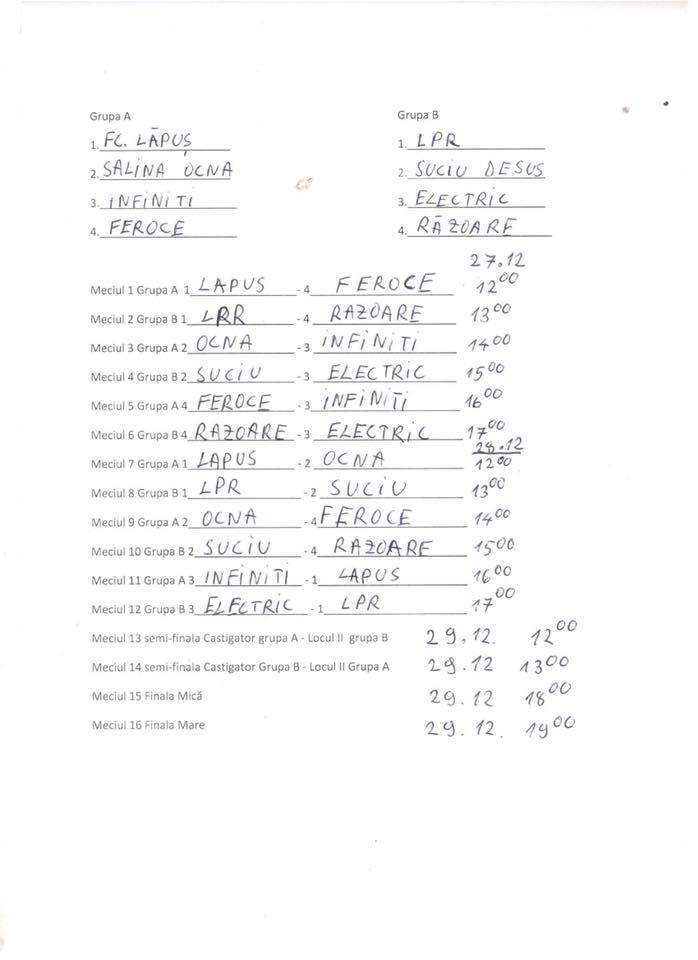 Grupa A Grupa B
1. FC. LĂPUȘ 1. LPR
2. SALINA OCNA 2. SUCIU DESUS
3. INFINITI 3. ELECTRIC
4. FEROCE 4. RĂZOARE
27.12
Meciul 1 Grupa A 1 LAPUS - 4 FEROCE 12 00
Meciul 2 Grupa B 1 LRR - 4 RAZOARE 13 00
Meciul 3 Grupa A 2 OCNA - 3 INFINITI 14 00
Meciul 4 Grupa B 2 SUCIU - 3 ELECTRIC 15 00
Meciul 5 Grupa A 4 FEROCE - 3 INFINITI 16 00
Meciul 6 Grupa B 4 RAZOARE - 3 ELECTRIC 17 00
28.12
Meciul 7 Grupa A 1 LAPUS - 2 OCNA 12 00
Meciul 8 Grupa B 1 LPR - 2 SUCIU 13 00
Meciul 9 Grupa A 2 OCNA - 4 FEROCE 14 00
Meciul 10 Grupa B 2 SUCIU - 4 RAZOARE 15 00
Meciul 11 Grupa A 3 INFINITI - 1 LAPUS 16 00
Meciul 12 Grupa B 3 ELECTRIC - 1 LPR 17 00
Meciul 13 semi-finala Castigator grupa A - Locul II grupa B 29.12. 12 00
Meciul 14 semi-finala Castigator Grupa B - Locul II Grupa A 29.12 13 00
Meciul 15 Finala Mică 29.12 18 00
Meciul 16 Finala Mare 29.12. 19 00